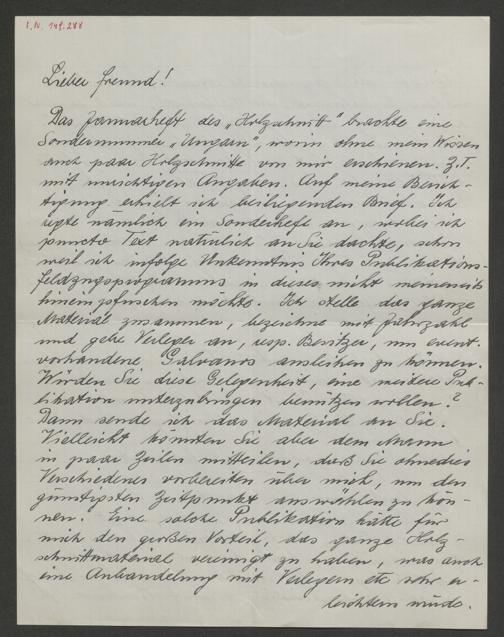 I.N. 149.288
Lieber Freund!
Das Januarheft des „Holzschnitt" brachte eine
Sondernummer „Ungarn", worin ohne mein Wissen
auch paar Holzschnitte von mir erschienen. Z.T.
mit unrichtigen Angaben. Auf meine Berich-
tigung erhielt ich beiliegenden Brief. Ich
regte nämlich ein Sonderheft an, wobei ich
puncto Text natürlich an Sie dachte, schon
weil ich infolge Unkenntnis Ihres Publikations-
feldzugsprogramms in dieses nicht meinerseits
hineinpfuschen möchte. Ich stelle das ganze
Material zusammen, bezeichne mit Jahrzahl
und gebe Verleger an, resp. Besitzer, um event.
vorhandene Galvanos ausleihen zu können.
Würden Sie diese Gelegenheit, eine weitere Pub-
likation unterzubringen benützen wollen?
Dann sende ich das Material an Sie.
Vielleicht könnten Sie aber dem Mann
in paar Zeilen mitteilen, daß Sie ohnedies
Verschiedenes vorbereiten über mich, um den
günstigsten Zeitpunkt auswählen zu kön-
nen. Eine solche Publikation hätte für
mich den großen Vorteil, das ganze Holz-
schnittmaterial vereinigt zu haben, was auch
eine Anbandelung mit Verlegern etc sehr er-
leichtern würde.